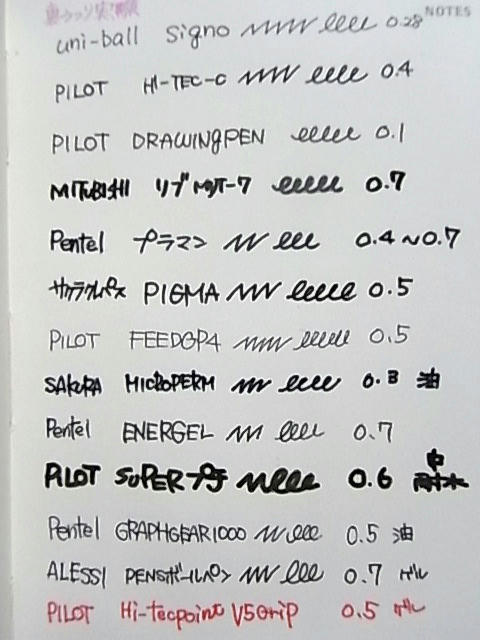 NOTES
uni-ball Signo 0.28
PILOT HI-TEC-C 0.4
PILOT DRAWINGPEN 0.1
MITUBISHI リブ 0.7
Pentel プラマン 0.4~0.7
サクラクレパス PIGMA 0.5
PILOT FEEDGP4 0.5
SAKURA MICROPERM 0.3 油
Pentel ENERGEL 0.7
PILOT SUPERプチ 0.6 中 耐水
Pentel GRAPHGEAR1000 0.5 油
ALESSI PENSボールペン 0.7 ゲル
PILOT Hi-tecpoint V5Grip 0.5 ゲル